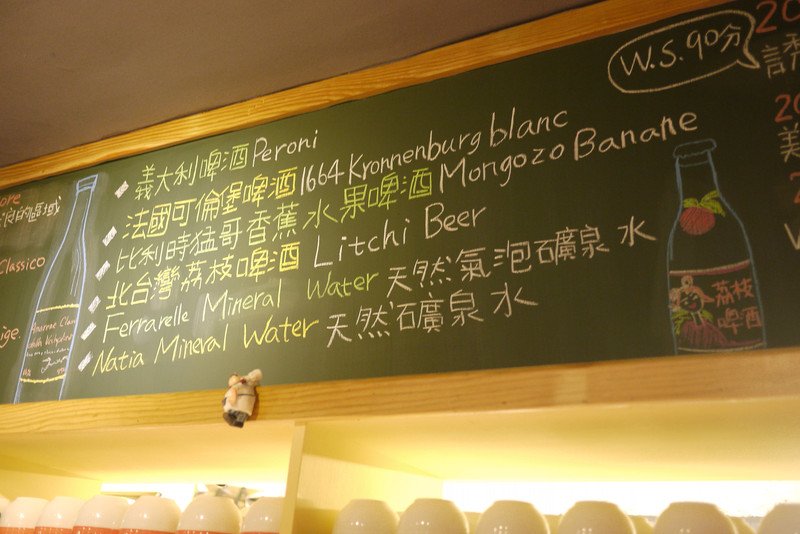 W.S. 90分
義大利啤酒 Peroni
法國可倫堡啤酒 1664 Kronnenburg blanc
比利時猛哥香蕉水果啤酒 Mongozo Banane
北台灣荔枝啤酒 Litchi Beer
Ferrarelle Mineral Water 天然氣泡礦泉水
Natia Mineral Water 天然礦泉水
的區域
Classico
荔枝
啤酒